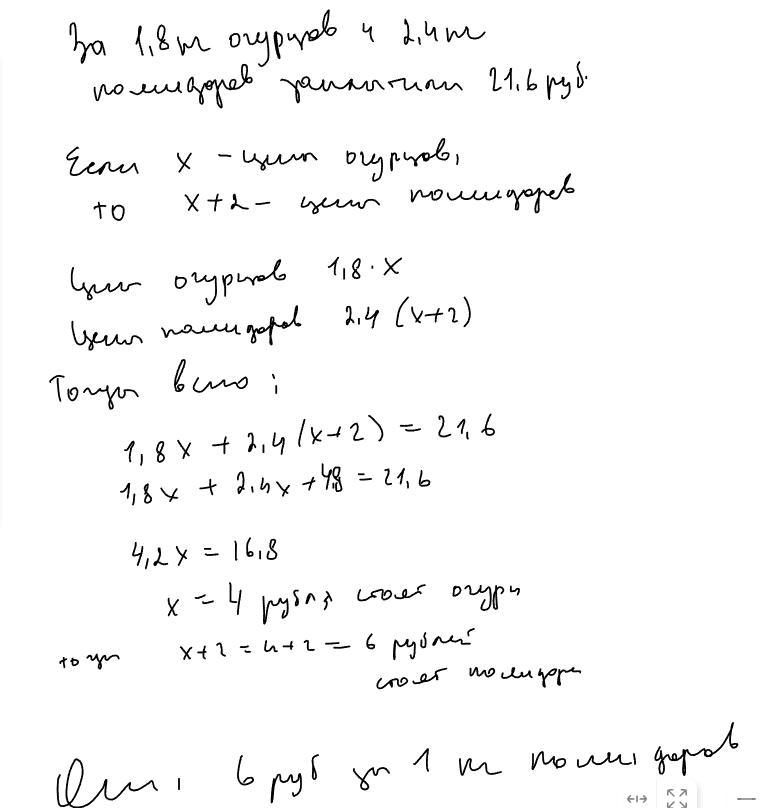 За 1,8 кг огурцов и 2,4 кг
помидоров заплатили 21,6 руб.
Если x – цена огурцов,
то x+2 – цена помидоров
Цена огурцов 1,8 · x
Цена помидоров 2,4 (x+2)
Тогда всего:
1,8x + 2,4(x+2) = 21,6
1,8x + 2,4x + 4,8 = 21,6
4,2x = 16,8
x = 4 рубля стоят огурцы
тогда x+2 = 4+2 = 6 рублей
стоят помидоры
Отв: 6 руб за 1 кг помидоров